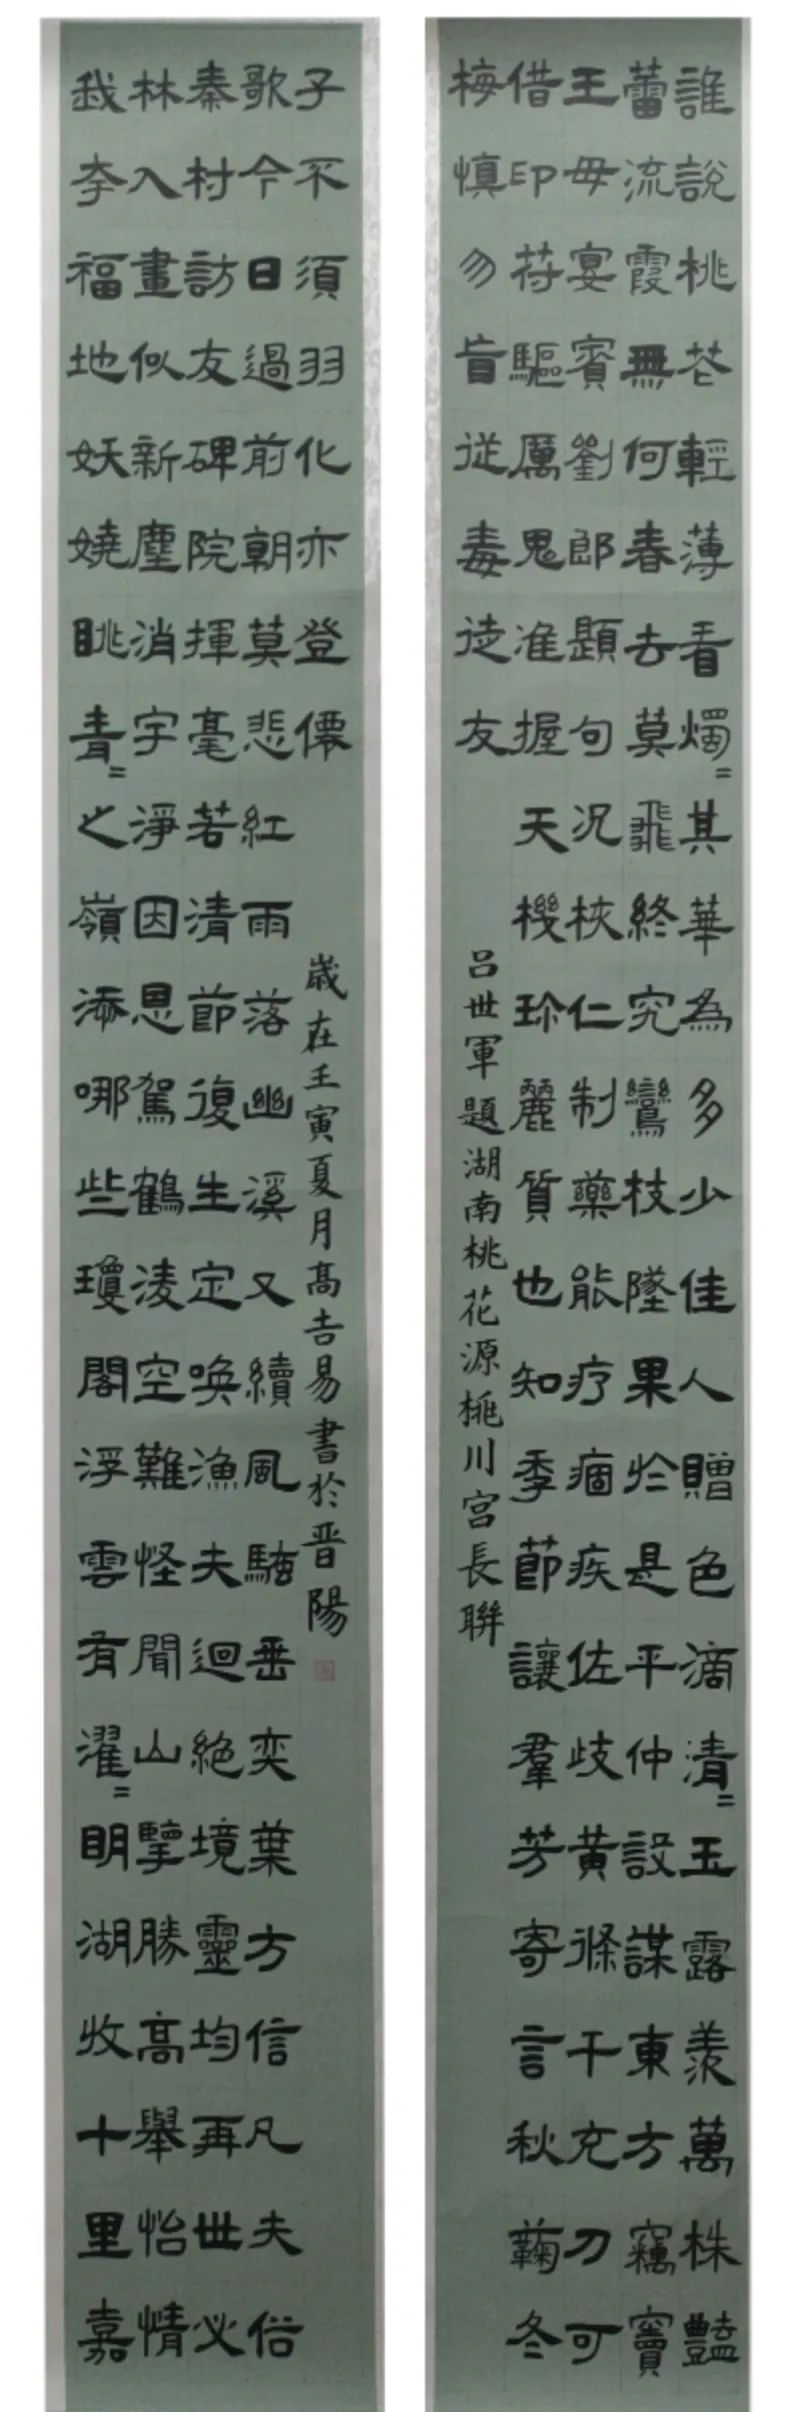 誰說桃芲輕薄看燭=其華為多少佳人贈色滴清=玉露羨萬株豔
蕾流霞無何春去莫飛終究鸞枝墜果於是平仲設謀東方竊竇
王母宴賓劉郎題句況梜仁制藥能疗痼疾佐歧黃條干充刀可
借印苻驅厲鬼准握天機珎麗質也知季節讓羣芳寄言秋鞠冬
梅慎勿盲從毒徒友
呂世軍題湖南桃花源桃川宮長聯
我來福地妖嬈眺青=之嶺添哪些瓊閣浮雲有濯=明湖收十里嘉
林入畫似新塵消宇淨因思駕鶴凌空難怪聞山擥勝高舉怡情
秦村訪友碑院揮毫若清節復生定喚漁夫迴絕境靈均再世必
歌今日過前朝莫悲紅雨落幽溪又續風騷垂奕葉方信凡夫俗
子不須羽化亦登僊
歲在壬寅夏月高吉易書於晉陽